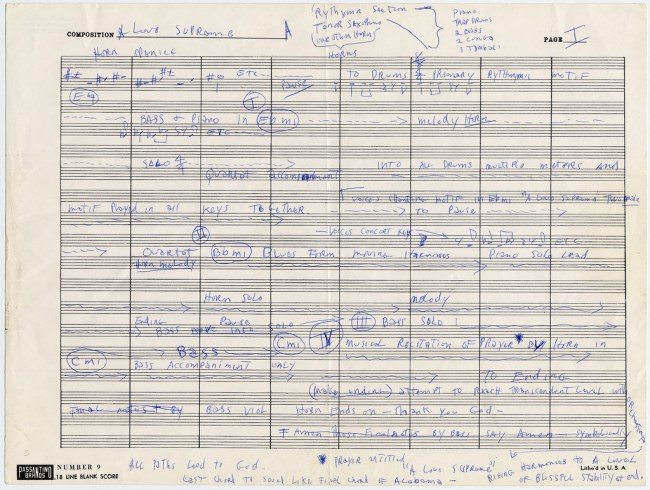 COMPOSITION A Love Supreme A
Rythymn Section —
Tenor Saxophone
one other horn
Piano
Trap Drums
2 Bass
2 Conga
1 Timbale
PAGE I
Horn
HORNS
ETC Pause TO DRUMS PRIMARY RYTHYMIC MOTIF
E
I
BASS + PIANO IN Ebmi melody Horn
ETC
SOLO 4/4 INTO ALL DRUMS MULTIPLE METERS AND
Quartet accompaniment
voices chanting motif in Ebmi "A Love Supreme"
motif Played in all KEYS TOGETHER TO PAUSE
II
VOICES CONCERT KEY ETC
Quartet Bbmi Blues Form moving Harmonies Piano Solo Lead
Horn melody
Horn Solo melody
Ending Pause
Bass into Solo III BASS SOLO
Bass Cmi IV MUSICAL RECITATION OF PRAYER BY HORN IN
Cmi
BASS ACCOMPANIMENT ONLY
TO Ending
attempt to reach Transcendent Level with
Bass Horn Ends on — Thank you God —
Final notes By Bass say Amen — symbolically
All paths lead to God. PRAYER Entitled
"A Love Supreme"
Last chord to sound like final chord of Alabama —
Rising harmonies to a Level
of blissful stability at end.
PASSANTINO BRANDS
NUMBER 9
18 LINE BLANK SCORE
Litho'd in U. S. A.